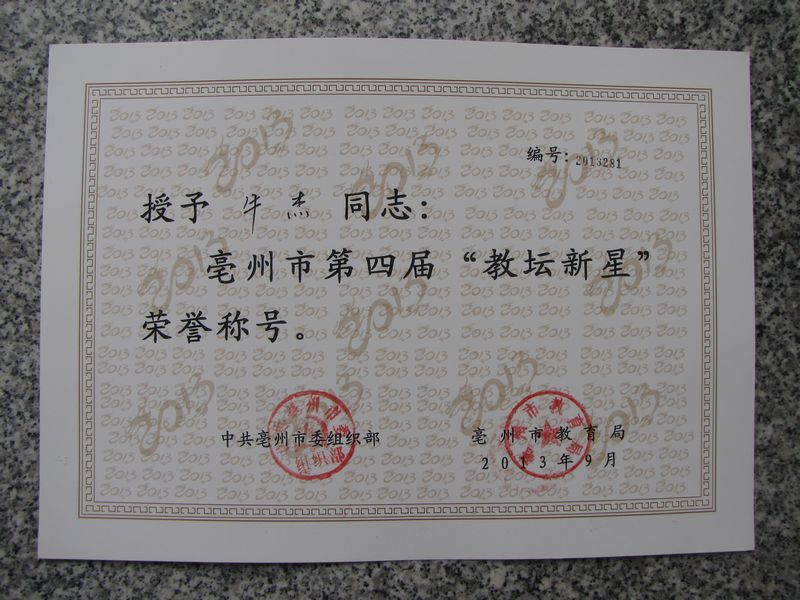 编号：2013281
授予 牛杰 同志：
亳州市第四届“教坛新星”
荣誉称号。
中共亳州市委组织部 亳州市教育局
2013年9月